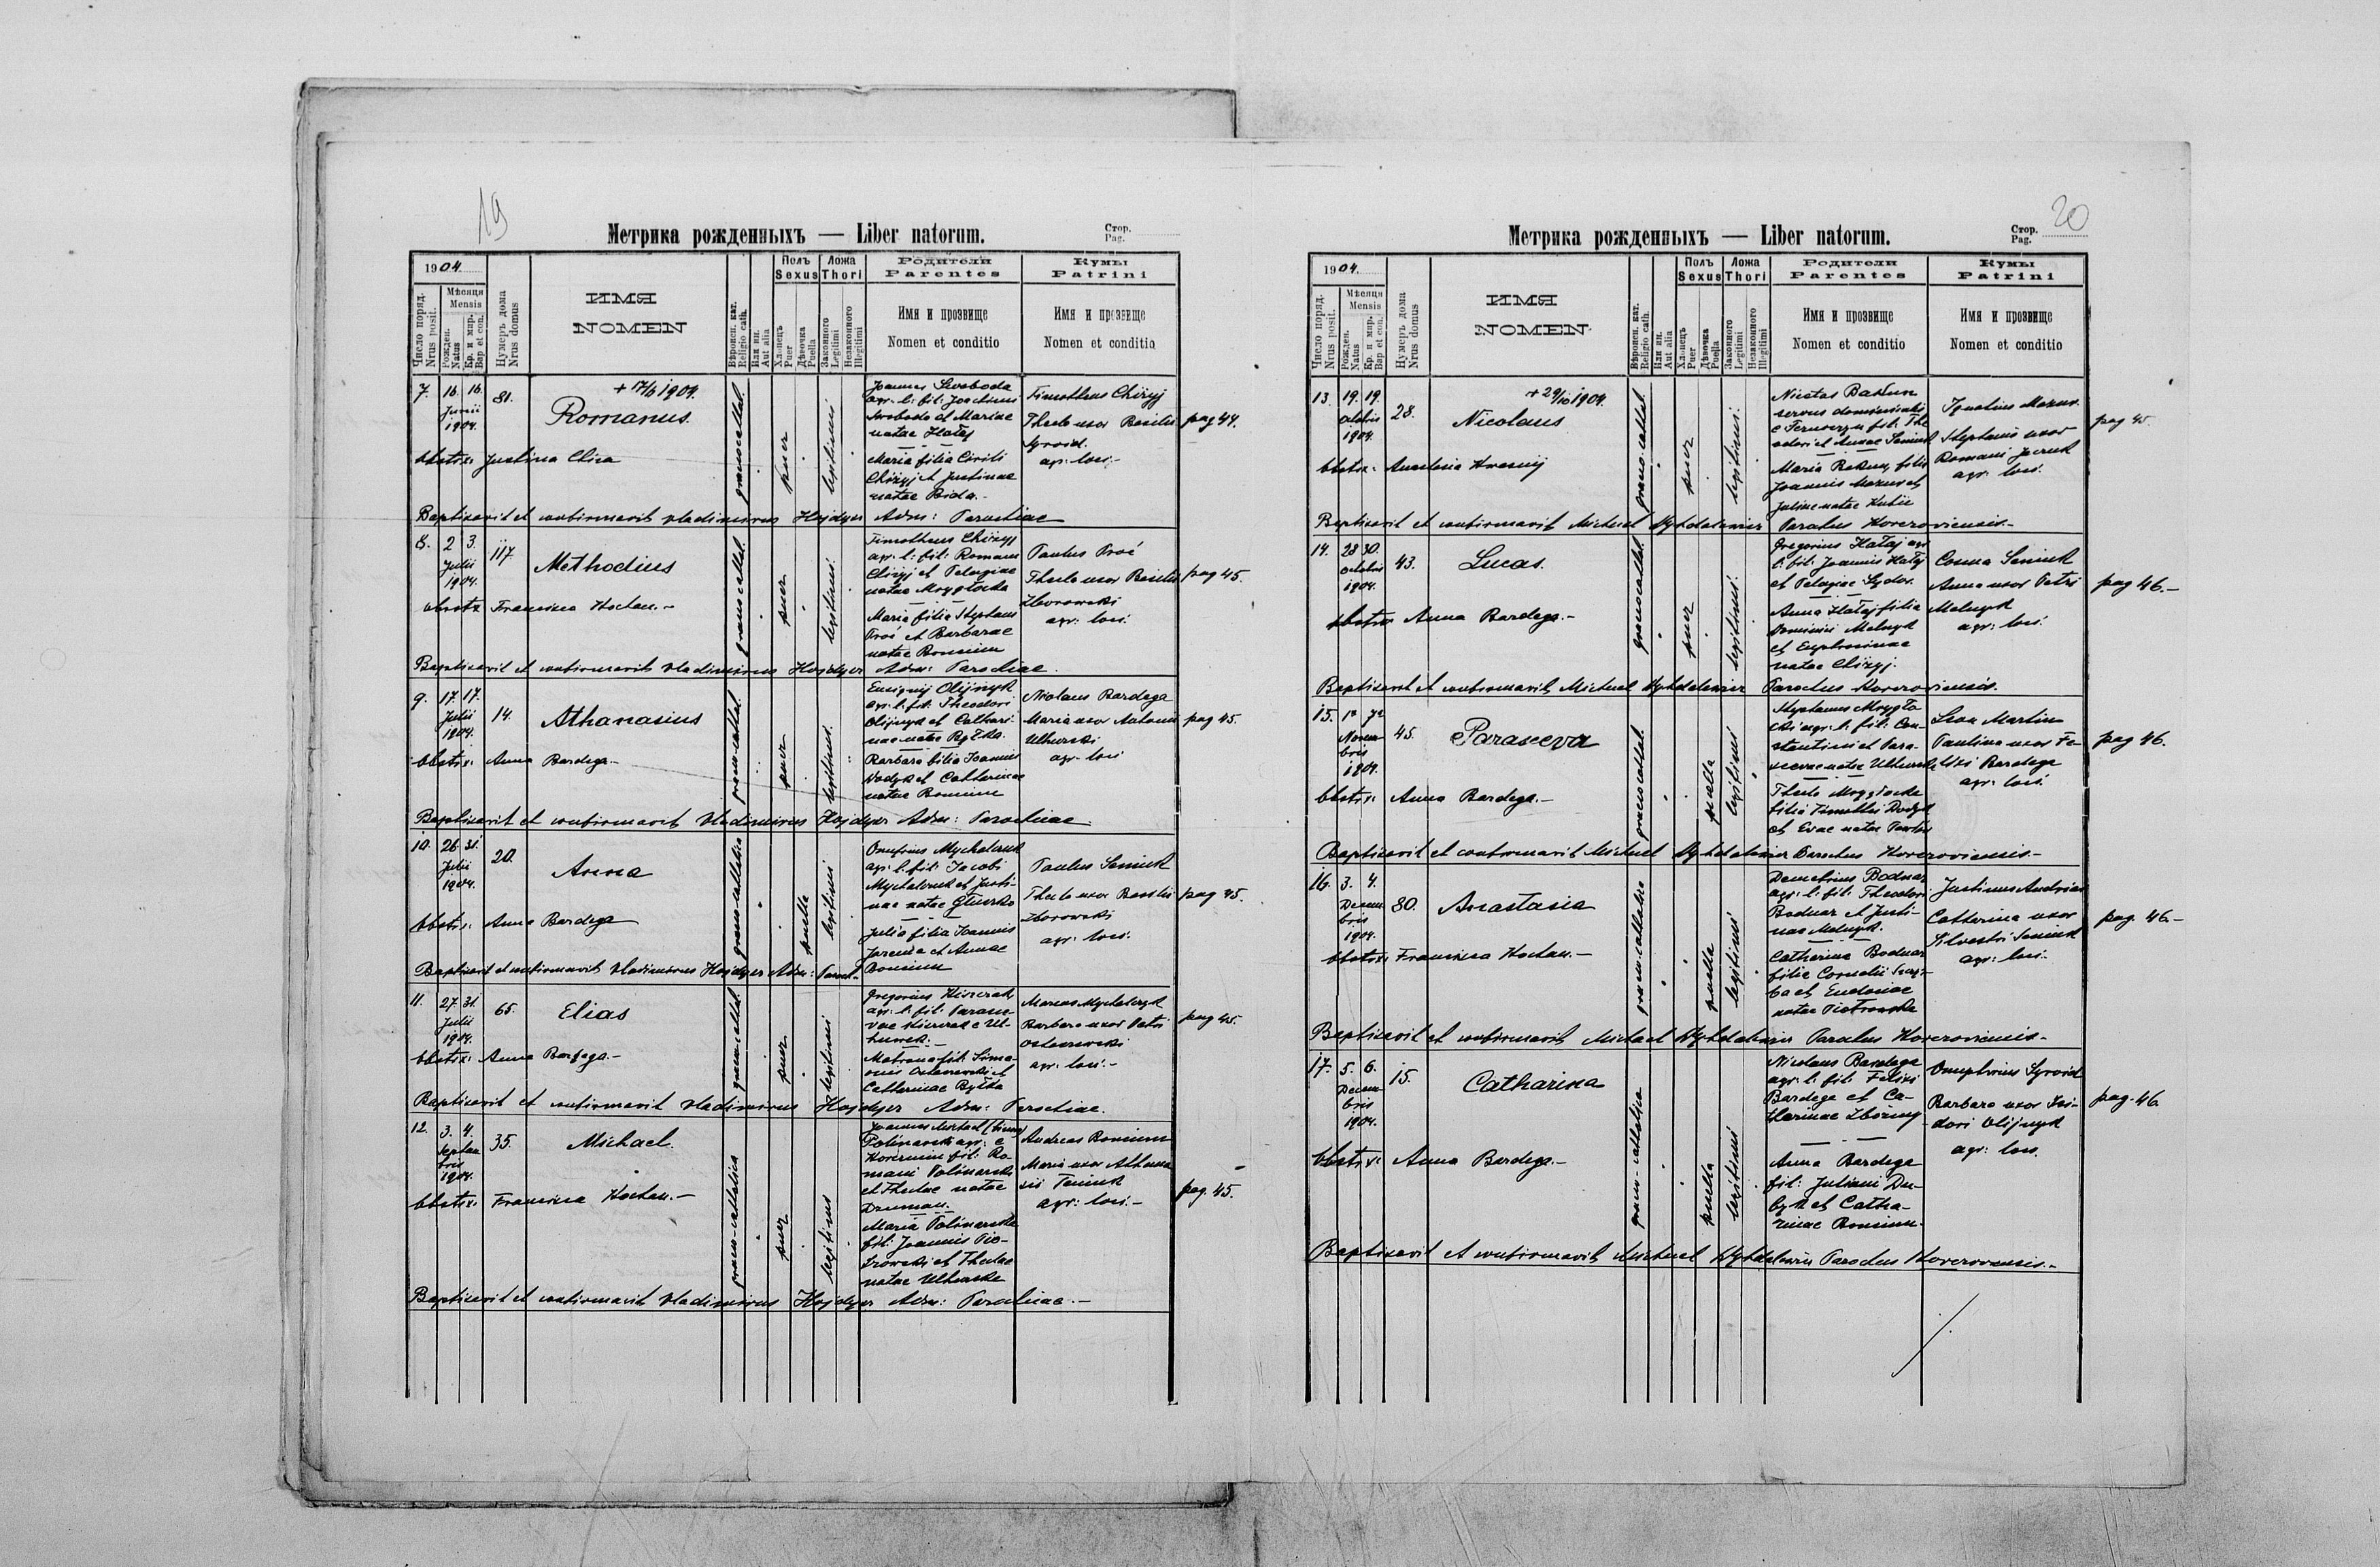 19
Метрика рожденныхъ — Liber natorum.
Стор.
Pag.
1904.
Число поряд.
Nrus posit.
Мѣсяця
Mensis
Рожден.
Natus
Кр. и мѵр.
Bap et con.
Нумеръ дома
Nrus domus
ИМЯ
NOMEN
Вѣроисп. кат.
Religio cath.
Или ин.
Aut alia
Полъ
Sexus
Хлопецъ
Puer
Дѣвочка
Puella
Ложа
Thori
Законного
Legitimi
Незаконного
Illegitimi
Родители
Parentes
Имя и прозвище
Nomen et conditio
Кумы
Patrini
Имя и прозвище
Nomen et conditio
7. 16. 16. Junii 1904. 81.
+ 17/6 1904.
Romanus.
graeco-cathol.
puer
legitimi
Joannes Swoboda
agr. l: fil: Joachimi
Swoboda et Mariae
natae Hałaj
Maria filia Cirili
Chizyj et Justinae
natae Bida.-
Timotheus Chizyj
Thecla uxor Basilii
agr: loci.-
pag 44.
obstetrix: Justina
Baptisavit et confirmavit Vladimirus Hajdyer Adm: Parochiae
8. 2 3. Julii 1904. 117.
Methodius
graeco-cathol.
puer
legitimi
Timotheus Chizyj
agr. l: fil: Romani
Chizyj et Pelagiae
natae Mrygłocka
Maria filia Stephani
et Barbarae
natae Romium
Paulus
Thecla uxor Basilii
Zborowski
agr: loci.
pag 45.
obstetrix Francisca Kochan.-
Baptisavit et confirmavit Vladimirus Hajdyer Adm: Parochiae.
9. 17. 17. Julii 1904. 14.
Athanasius
graeco-cathol.
puer
legitimus.
Olijnyk
agr. l: fil: Theodori
Olijnyk et Cathari-
nae natae
Barbara filia Joannis
et Catharinae
natae Romium
Nicolaus Bardega
Maria uxor Antonii
Ulhurski
agr. loci
pag 45.
obstetrix: Anna Bardega.-
Baptisavit et confirmavit Vladimirus Hajdyer Adm: Parochiae.
10. 26. 31. Julii 1904. 20.
Anna
graeco-catholica
puella
legitimi
Onufrius Mychalczuk
agr. l: fil: Jacobi
Mychalczuk et Justi-
nae natae
Julia filia Joannis
Jarema et Annae
Romium
Paulus Seniuk
Thecla uxor Basilii
Zborowski
agr: loci.
pag 45.
obstetrix: Anna Bardega
Baptisavit et confirmavit Vladimirus Hajdyer Adm: Paroch.
11. 27. 31. Julii 1904. 65.
Elias
graeco-cathol.
puer
legitimi
Gregorius
agr. l: fil:
Matrona fil: Simo-
nis Ostaszewski et
Catharinae
Marcus Mychalczyk
Barbara uxor Petri
Ostaszewski
agr. loci.-
pag 45.
obstetrix: Anna Bardega.-
Baptisavit et confirmavit Vladimirus Hajdyer Adm: Parochiae.
12. 3. 4. Septembris 1904. 35.
Michael.
graeco-catholica
puer
legitimus
Joannes Michael
Polinarski agr: e
fil: Ro-
mani Polinarski
et Theclae natae
Maria Polinarska
fil: Joannis Pio-
trowski et Theclae
natae Ulhurska
Andreas Romium
Maria uxor Athana-
sii Seniuk
agr: loci.-
pag. 45.
obstetrix: Francisca Kochan.-
Baptisavit et confirmavit Vladimirus Hajdyer Adm: Parochiae.-
20
Метрика рожденныхъ — Liber natorum.
Стор.
Pag.
1904.
Число поряд.
Nrus posit.
Мѣсяця
Mensis
Рожден.
Natus
Кр. и мѵр.
Bap et con.
Нумеръ дома
Nrus domus
ИМЯ
NOMEN
Вѣроисп. кат.
Religio cath.
Или ин.
Aut alia
Полъ
Sexus
Хлопецъ
Puer
Дѣвочка
Puella
Ложа
Thori
Законного
Legitimi
Незаконного
Illegitimi
Родители
Parentes
Имя и прозвище
Nomen et conditio
Кумы
Patrini
Имя и прозвище
Nomen et conditio
13. 19. 19. Octobris 1904. 28.
+ 29/10 1904.
Nicolaus
graeco-cathol.
puer
legitimi.
servus
fil: The-
odori et Annae Seniuk
Maria filia
Joannis Mazur et
Julinae natae
Ignatius Mazur
Stephania uxor
Romani
agr: loci.
pag 45
obstetrix: Anastasia
Baptisavit et confirmavit Michael Parochus
14. 28 30. Octobris 1904. 43.
Lucas.
graeco-cathol.
puer
legitimi.
Gregorius Hałaj agr
l: fil: Joannis Hałaj
et Pelagiae Sydor.
Anna Hałaj filia
Dominici Melnyk
et Euphrosinae
natae Chizyj.
Cosma Seniuk
Anna uxor Petri
Melnyk
agr: loci.
pag 46.-
obstetrix Anna Bardega.-
Baptisavit et confirmavit Michael Parochus
15. 1a 7a Novembris 1904. 45.
Parasceva
graeco-cathol.
puella
legitimi
Stephanus Mrygło-
cki agr. l: fil: Con-
stantini et Para-
scevae natae Ulhurska
Thecla Mrygłocka
filia Timothei
et Evae natae
Leon Martin
Paulina uxor Fe-
lixi Bardega
agr: loci.
pag 46.
obstetrix: Anna Bardega.-
Baptisavit et confirmavit Michael Parochus
16. 3. 4. Decembris 1904. 80.
Anastasia
graeco-catholica
puella
legitimi
Demetrius Bodnar
agr: l: fil: Theodori
Bodnar et Justi-
nae Melnyk.
Catharina Bodnar
filia Cornelii
et Eudoxiae
natae Piotrowska
Justinus
Catharina uxor
Silvestri Seniuk
agr: loci.
pag. 46.-
obstetrix Francisca Kochan.-
Baptisavit et confirmavit Michael Parochus
17. 5. 6. Decembris 1904. 15.
Catharina
graeco-catholica
puella
legitimi
Nicolaus Bardega
agr. l: fil: Felixi
Bardega et Ca-
tharinae
Anna Bardega
fil: Juliani Du-
et Catha-
rinae Romium.
Onuphrius
Barbara uxor Isi-
dori Olijnyk
agr: loci.
pag. 46.
obstetrix: Anna Bardega.-
Baptisavit et confirmavit Michael Parochus